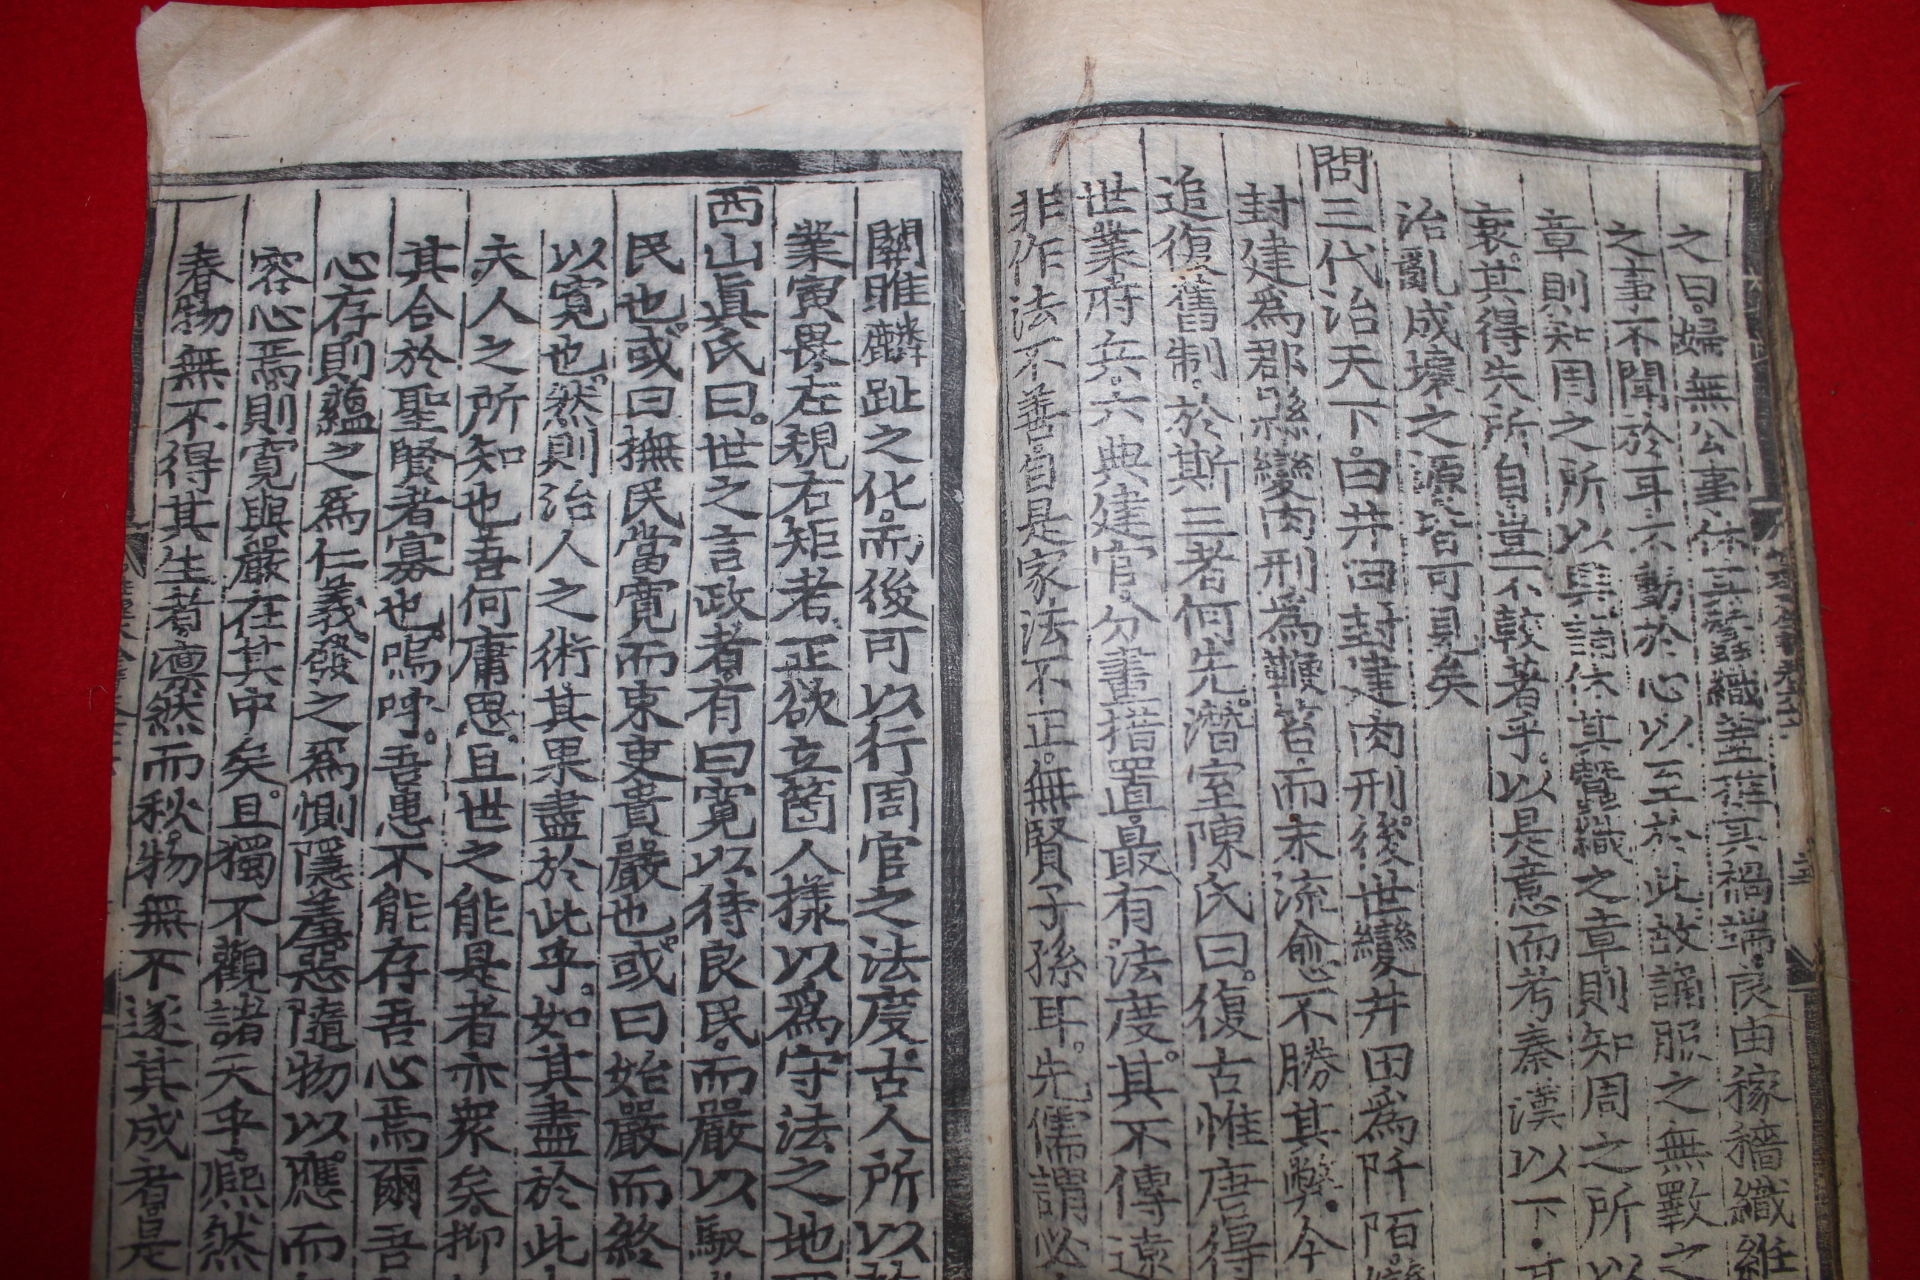 之曰婦無公事休其蠶織蓋推其禍端良由稼穡織紝
之事不聞於耳不動於心以至於此故誦服之無斁之
章則知周之所以興誦休其蠶織之章則知周之所以
衰其得失所自豈不較著乎以是意而考秦漢以下其
治亂成壞之源皆可見矣
問三代治天下曰井田封建肉刑後世變井田爲阡陌變
封建爲郡縣變肉刑爲鞭笞而末流愈不勝其弊今
追復舊制於斯三者何先潛室陳氏曰復古惟唐得
世業府兵六典建官分畫措置最有法度其不傳遠
非作法不善自是家法不正無賢子孫耳先儒謂必
關雎麟趾之化而後可以行周官之法度古人所以
業寅畏左規右矩者正欲立箇人樣以爲守法之地
西山眞氏曰世之言政者有曰寬以待良民而嚴以馭
民也或曰撫民當寬而束吏貴嚴也或曰始嚴而終
以寬也然則治人之術其果盡於此乎如其盡於此
夫人之所知也吾何庸思且世之能是者亦衆矣抑
其合於聖賢者寡也嗚呼吾患不能存吾心焉爾吾
心存則蘊之爲仁義發之爲惻隱羞惡隨物以應而
容心焉則寬與嚴在其中矣且獨不觀諸天乎熙然
春物無不得其生者凛然而秋物無不遂其成者是